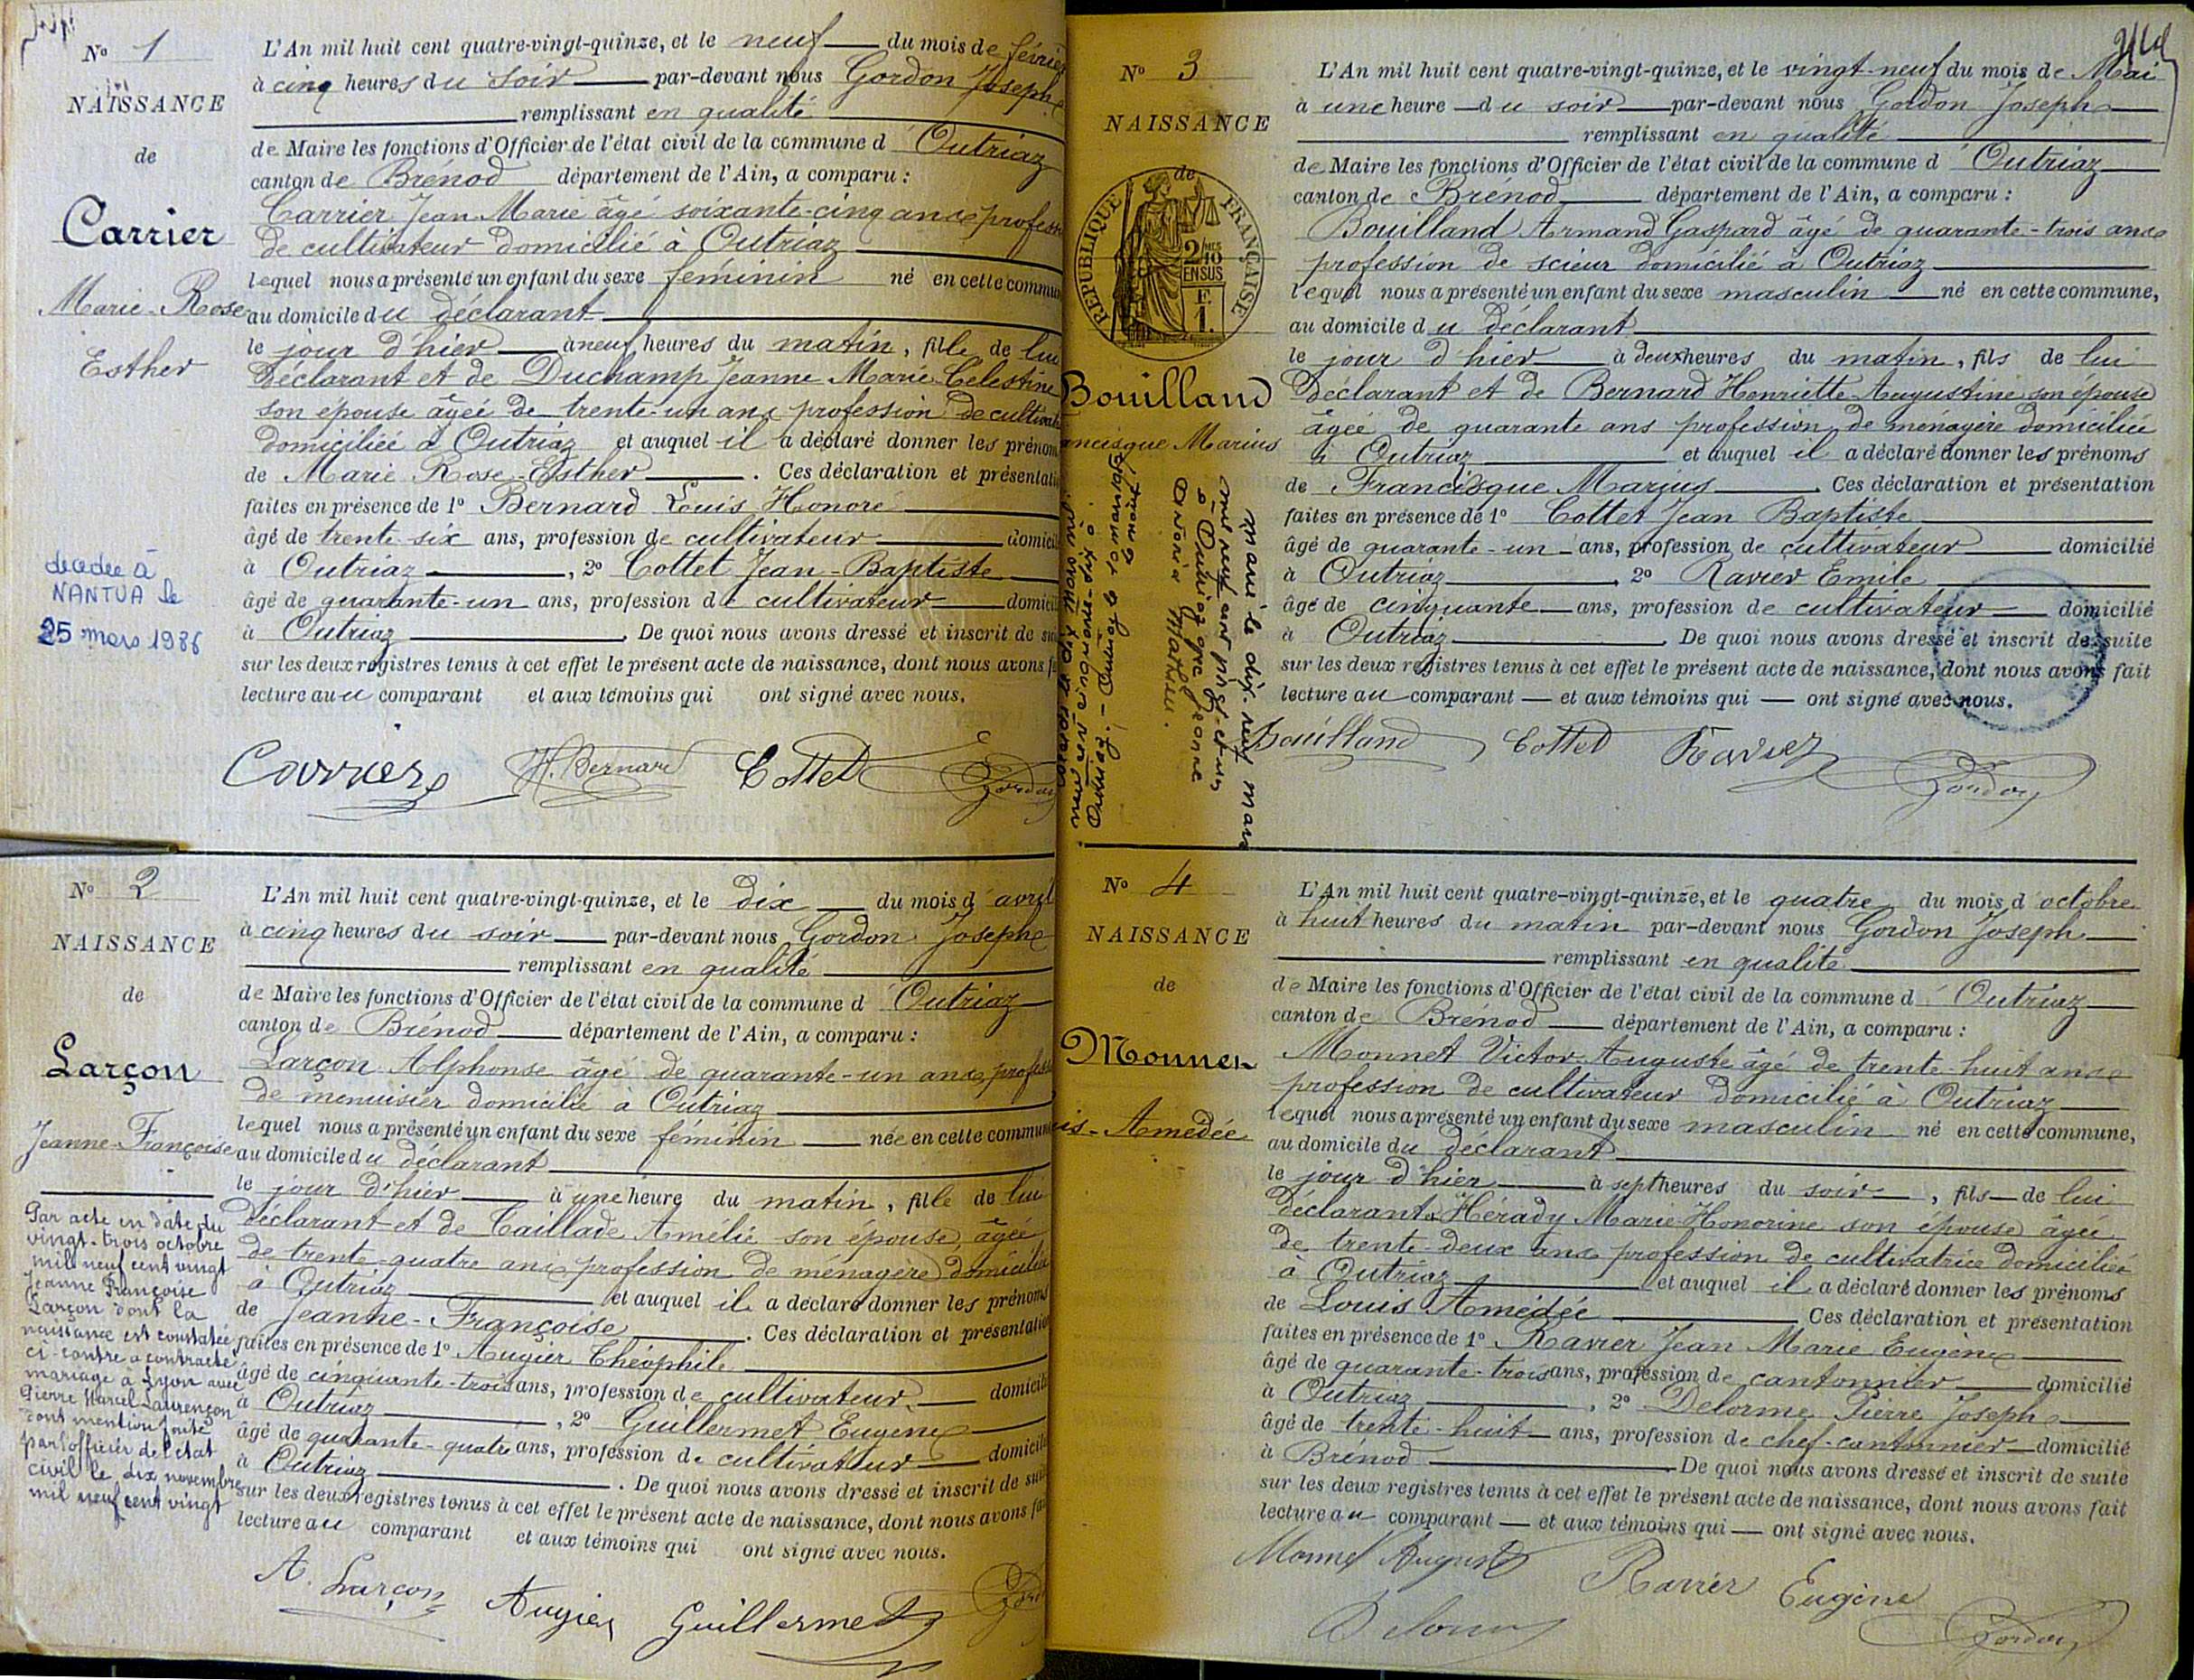 N° 1
NAISSANCE
de
Carrier
Marie-Rose
Esther
décédée à
NANTUA le
25 mars 1986
L'An mil huit cent quatre-vingt-quinze, et le neuf du mois de févrie
à cinq heures du soir par-devant nous Gordon Joseph
remplissant en qualité
de Maire les fonctions d'Officier de l'état civil de la commune d'Outriaz
canton de Brénod département de l'Ain, a comparu :
Carrier Jean Marie âgé soixante-cinq ans profess
de cultivateur domicilié à Outriaz
lequel nous a présenté un enfant du sexe féminin né en cette commun
au domicile du déclarant
le jour d'hier à neuf heures du matin, fille de lui
déclarant et de Duchamp Jeanne Marie Celestine
son épouse âgée de trente-un ans profession de cultivat
domiciliée à Outriaz et auquel il a déclaré donner les prénom
de Marie Rose-Esther. Ces déclaration et présentati
faites en présence de 1° Bernard Louis Honoré
âgé de trente six ans, profession de cultivateur domicil
à Outriaz, 2° Cottet Jean-Baptiste
âgé de quarante-un ans, profession de cultivateur domicil
à Outriaz. De quoi nous avons dressé et inscrit de su
sur les deux registres tenus à cet effet le présent acte de naissance, dont nous avons f
lecture au comparant et aux témoins qui ont signé avec nous.
Carrier H. Bernard Cottet Gordon
N° 2
NAISSANCE
de
Larçon
Jeanne-Françoise
Par acte en date du
vingt-trois octobre
mil neuf cent vingt
Jeanne Françoise
Larçon dont la
naissance est constatée
ci-contre a contracté
mariage à Lyon avec
Pierre Marcel Laurençon
dont mention faite
par l'officier de l'état
civil le dix novembre
mil neuf cent vingt
L'An mil huit cent quatre-vingt-quinze, et le dix du mois d'avril
à cinq heures du soir par-devant nous Gordon Joseph
remplissant en qualité
de Maire les fonctions d'Officier de l'état civil de la commune d'Outriaz
canton de Brénod département de l'Ain, a comparu :
Larçon Alphonse âgé de quarante-un ans, profess
de menuisier domicilié à Outriaz
lequel nous a présenté un enfant du sexe féminin née en cette commun
au domicile du déclarant
le jour d'hier à une heure du matin, fille de lui
déclarant et de Taillade Amélie son épouse, âgée
de trente-quatre ans profession de ménagère domiciliée
à Outriaz et auquel il a déclaré donner les prénoms
de Jeanne-Françoise. Ces déclaration et présentation
faites en présence de 1° Augier Théophile
âgé de cinquante-trois ans, profession de cultivateur domicili
à Outriaz, 2° Guillermet Eugène
âgé de quarante-quatre ans, profession de cultivateur domicili
à Outriaz. De quoi nous avons dressé et inscrit de suit
sur les deux registres tenus à cet effet le présent acte de naissance, dont nous avons fa
lecture au comparant et aux témoins qui ont signé avec nous.
A. Larçon Augier Guillermet
N° 3
NAISSANCE
de
RÉPUBLIQUE FRANÇAISE
2/10
EN SUS
F.
1.
Bouilland
ancisque Marius
Marié le dix-neuf mars
mil neuf cent vingt-et-un
à Outriaz avec Jeanne
Mathieu.
L'An mil huit cent quatre-vingt-quinze, et le vingt-neuf du mois de Mai
à une heure du soir par-devant nous Gordon Joseph
remplissant en qualité
de Maire les fonctions d'Officier de l'état civil de la commune d'Outriaz
canton de Brénod département de l'Ain, a comparu :
Bouilland Armand Gaspard âgé de quarante-trois ans
profession de scieur domicilié à Outriaz
lequel nous a présenté un enfant du sexe masculin né en cette commune,
au domicile du déclarant
le jour d'hier à deux heures du matin, fils de lui
déclarant et de Bernard Henriette Augustine son épouse
âgée de quarante ans profession de ménagère domiciliée
à Outriaz et auquel il a déclaré donner les prénoms
de Francisque Marius Ces déclaration et présentation
faites en présence de 1° Cottet Jean Baptiste
âgé de quarante-un ans, profession de cultivateur domicilié
à Outriaz, 2° Ravier Emile
âgé de cinquante ans, profession de cultivateur domicilié
à Outriaz. De quoi nous avons dressé et inscrit de suite
sur les deux registres tenus à cet effet le présent acte de naissance, dont nous avons fait
lecture au comparant — et aux témoins qui — ont signé avec nous.
Bouilland Cottet Ravier Gordon
N° 4
NAISSANCE
de
Monnet
is-Amédée
L'An mil huit cent quatre-vingt-quinze, et le quatre du mois d'octobre
à huit heures du matin par-devant nous Gordon Joseph
remplissant en qualité
de Maire les fonctions d'Officier de l'état civil de la commune d'Outriaz
canton de Brénod département de l'Ain, a comparu :
Monnet Victor-Auguste âgé de trente-huit ans
profession de cultivateur domicilié à Outriaz
lequel nous a présenté un enfant du sexe masculin né en cette commune,
au domicile du déclarant
le jour d'hier à sept heures du soir, fils de lui
déclarant & Hérady Marie-Honorine son épouse âgée
de trente-deux ans profession de cultivatrice domiciliée
à Outriaz et auquel il a déclaré donner les prénoms
de Louis Amédée Ces déclaration et présentation
faites en présence de 1° Ravier Jean Marie Eugène
âgé de quarante-trois ans, profession de cantonnier domicilié
à Outriaz, 2° Delorme Pierre Joseph
âgé de trente-huit ans, profession de chef-cantonnier domicilié
à Brénod De quoi nous avons dressé et inscrit de suite
sur les deux registres tenus à cet effet le présent acte de naissance, dont nous avons fait
lecture au comparant — et aux témoins qui — ont signé avec nous.
Monnet Auguste Ravier Eugène
Delorme Gordon